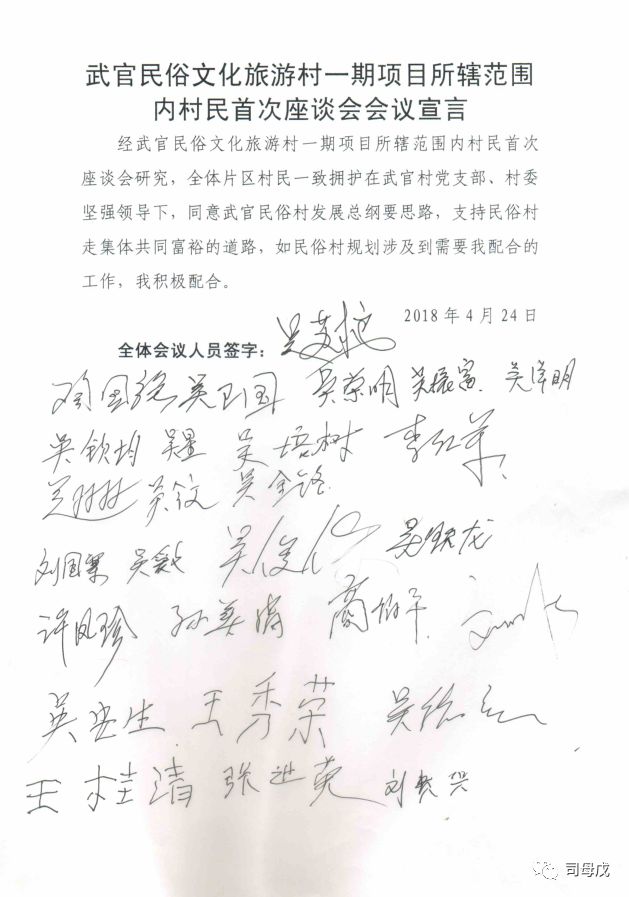 武官民俗文化旅游村一期项目所辖范围
内村民首次座谈会会议宣言
经武官民俗文化旅游村一期项目所辖范围内村民首次
座谈会研究，全体片区村民一致拥护在武官村党支部、村委
坚强领导下，同意武官民俗村发展总纲要思路，支持民俗村
走集体共同富裕的道路，如民俗村规划涉及到需要我配合的
工作，我积极配合。
2018年4月24日
全体会议人员签字：
吴卫国 吴荣明 吴振富 吴泽明
吴钦均 吴星 吴培树
吴金铭
刘国军
许凤珍 孙美娟
吴安生 王秀荣
王桂清 张进英
司母戊